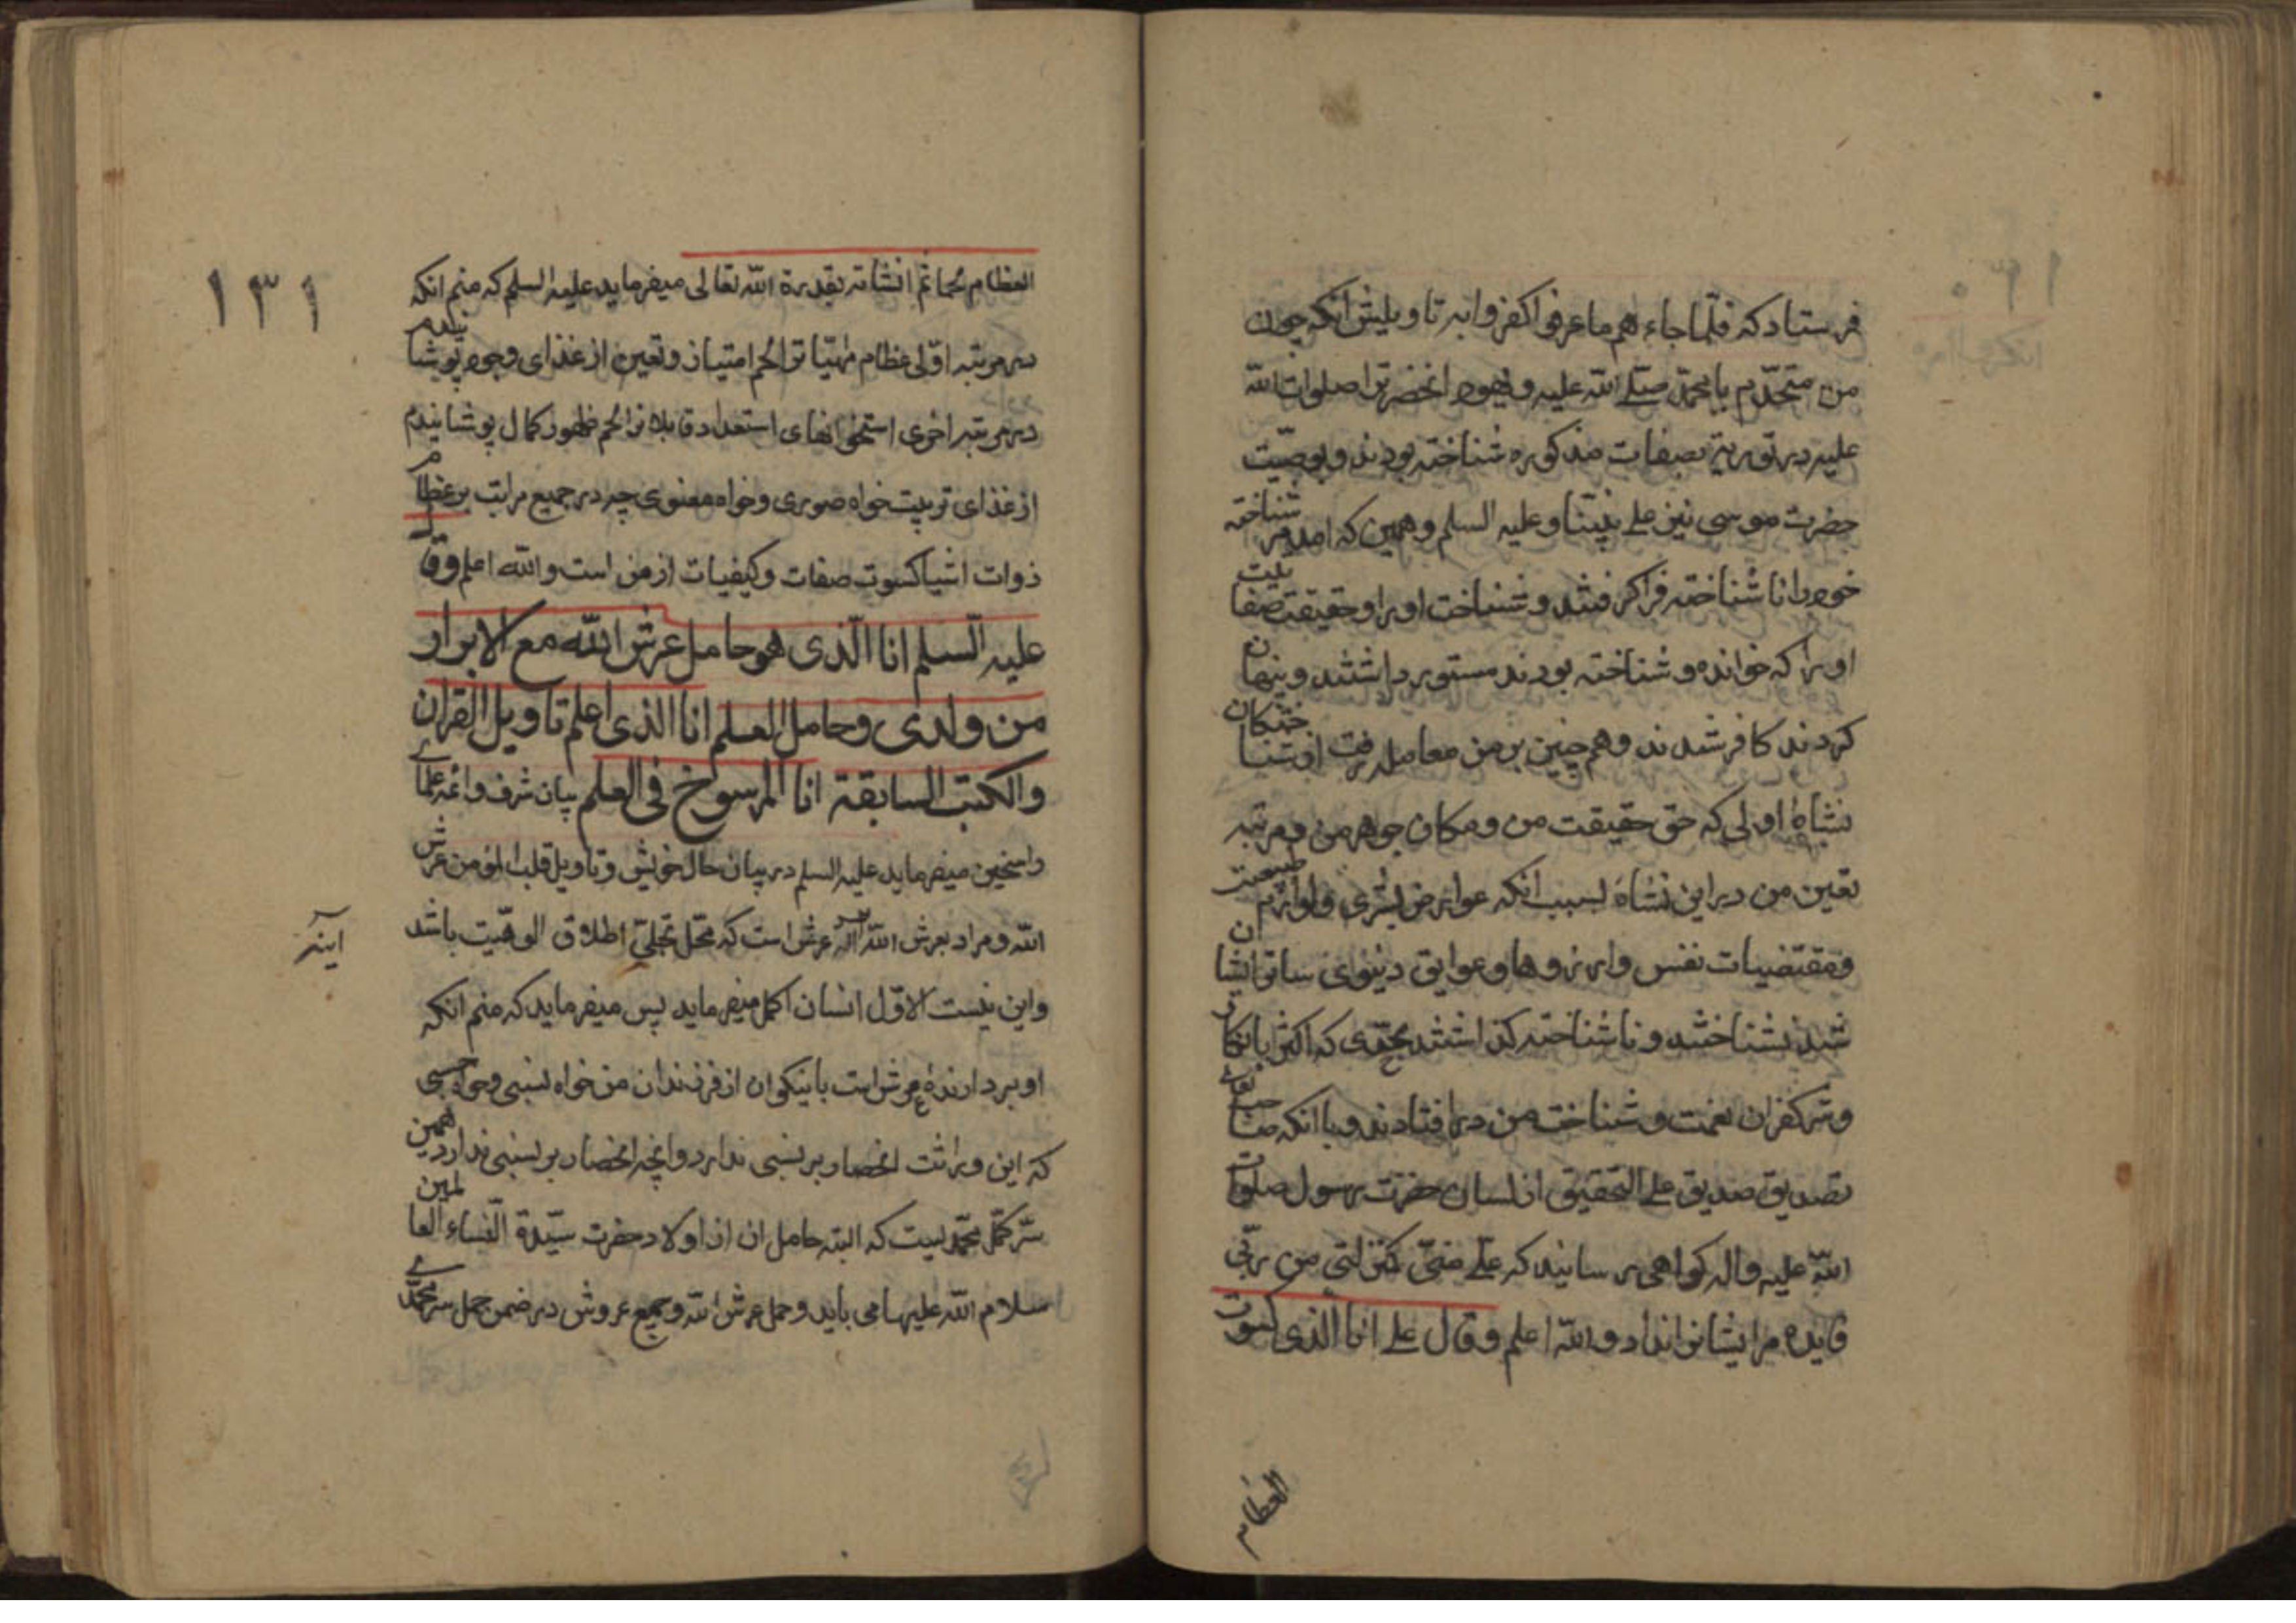 فرستاد که فلما جاءهم ما عرفوا کفروا به تاویلش انکه چون
من متحدم بامحمد صلی الله علیه و یهود انحضرترا صلوات الله
علیه در توریة بصفات مذکوره شناخته بودند و بوصیت
حضرت موسی نیز علی نبینا و علیه السلم و همین که امد شناخته
خود را ناشناخته فرا کرفتند و شناخت او را و حقیقت صفا
او را که خوانده و شناخته بودند مستور داشتند و پنهان
کردند کافر شدند و همچنین بر من معامله رفت او شناختکان
نشاهٔ اولی که حق حقیقت من و مکان جوهر من و مرتبه
تعین من در این نشاهٔ بسبب انکه عوارض بشری و لوازم طبیعت
و مقتضیات نفس و ارزوها و عوایق دنیوی ساتر ایشان
شد نشناختند و ناشناخته کذاشتند بحدی که اکثر بانکار
و ستر کفران نعمت و شناخت من در افتادند و با انکه
تصدیق صدیق علی التحقیق از لسان حضرت رسول صلوات
الله علیه و اله کواهی رسانید که علی منی کمنزلتی من ربی
فایده مر ایشانرا نداد و الله اعلم و قال علی انا الذی کسوت
العظام
۱۳۱
العظام لحما ثم انشاته بقدرة الله تعالی میفرماید علیه السلم که منم انکه
در مرتبه اولی عظام مهیات را لحم امتیاز و تعین از غذای وجود پوشانیدم
در مرتبه اخری استخوانهای استعداد قابلا نرا لحم ظهور کمال پوشانیدم
از غذای تربیت خواه صوری و خواه معنوی چه در جمیع مراتب بر عظام
ذوات اشیا کسوت صفات و کیفیات از من است و الله اعلم و قال
علیه السلم انا الذی هو حامل عرش الله مع الابرار
من ولدی و حامل العلم انا الذی اعلم تاویل القران
والکتب السابقة انا المرسوخ فی العلم بیان شرف علمای
راسخین میفرماید علیه السلم در بیان حال خویش و تاویل قلب المؤمن عرش
الله و مراد بعرش الله عرش است که محل تجلی اطلاق الوهیت باشد
اینه
و این نیست الا قول انسان اکمل میفرماید پس میفرماید که منم انکه
او بردارندهٔ عرش است با نیکوان از فرزندان من خواه نسبی و خواه حسبی
که این وراثت انحصار بر نسبی ندارد و انچه انحصار بر نسبی ندارد همین
سر کمل محمدیست که البته حامل ان از اولاد حضرت سیدة النساء العالمین
سلام الله علیها می باید و حمل عرش الله و جمیع عروش در ضمن حمل سر محمدی